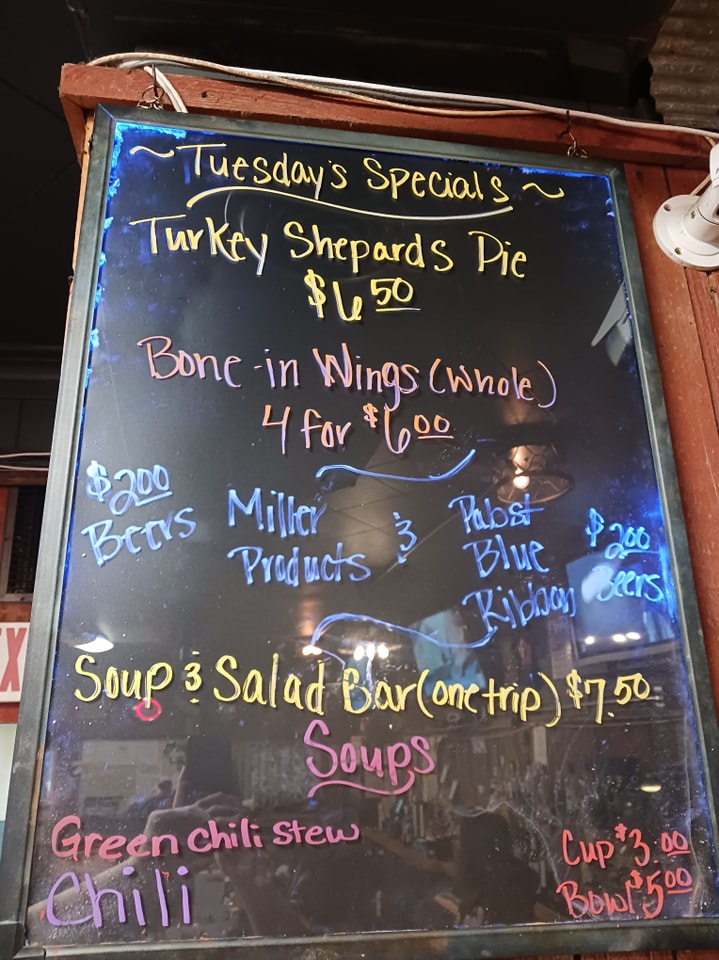 ~Tuesday's Specials~
Turkey Shepards Pie
$6.50
Bone-in Wings (whole)
4 for $6.00
$2.00 Beers
Miller Products & Pabst Blue Ribbon
$2.00 Beers
Soup & Salad Bar (one trip) $7.50
Soups
Green chili stew
Chili
Cup $3.00
Bowl $5.00
X